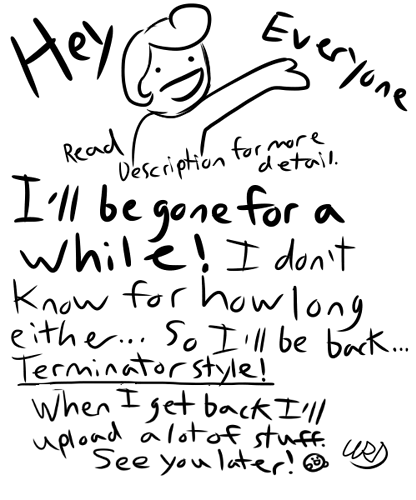 Hey Everyone
Read Description for more detail.
I'll be gone for a
while! I don't
know for how long
either... So I'll be back...
Terminator style!
When I get back I'll
upload a lot of stuff.
See you later!